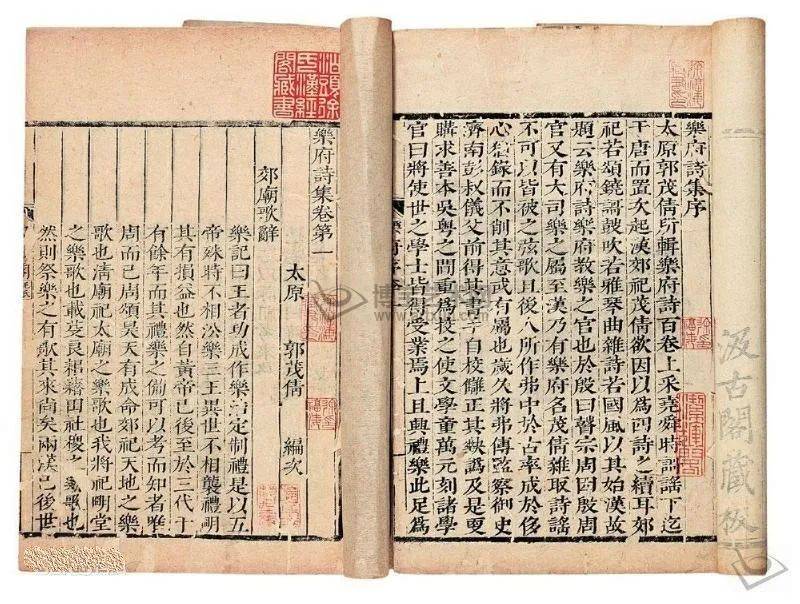 汲古閣藏板
樂府詩集序
太原郭茂倩所輯樂府詩百卷上采堯舜時謌謡下迄
于唐而置次起漢郊祀茂倩欲因以為四詩之續耳郊
祀若頌鐃歌鼓吹若雅琴曲雜詩若國風以其始漢故
題云樂府詩樂府教樂之官也於殷曰瞽宗周因殷周
官又有大司樂之屬至漢乃有樂府名茂倩雜取詩謡
不可以皆被之弦歌且後人所作弗中於古率成於侈
心猶錄而不削其意或有屬也歲久將弗傳監察御史
濟南彭叔儀父前得其書手自校讎正其缺譌及是更
購求善本吳粵之間重為挍之使文學童萬元刻諸學
官曰將使世之學士皆得受業焉上且興禮樂此足為
樂府詩集卷第一
太原 郭茂倩 編次
郊廟歌辭
樂記曰王者功成作樂治定制禮是以五
帝殊時不相㳂樂三王異世不相襲禮明
其有損益也然自黃帝已後至於三代千
有餘年而其禮樂之備可以考而知者唯
周而已周頌昊天有成命郊祀天地之樂
歌也清廟祀太廟之樂歌也我將祀明堂
之樂歌也載芟良耜藉田社稷之樂歌也
然則祭樂之有歌其來尚矣兩漢已後世